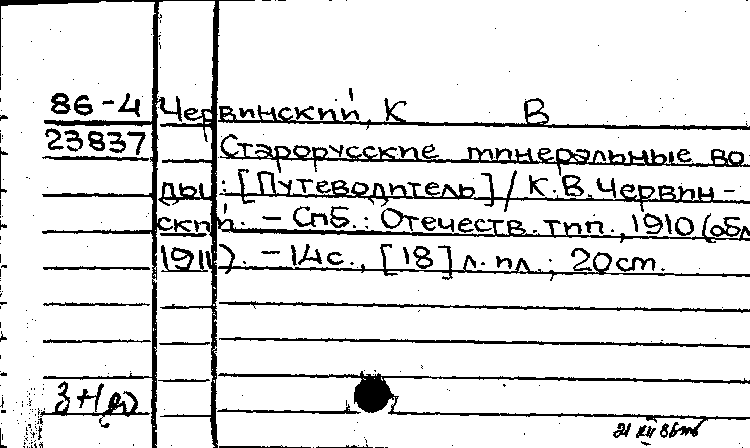 86-4 Червинский, К В
23837 Старорусские минеральные во-
ды : [Путеводитель] / К.В. Червин-
ский. - Спб. : Отечеств. тип., 1910 (обл.
1911). - 14 с., [18] л. ил. ; 20 см.